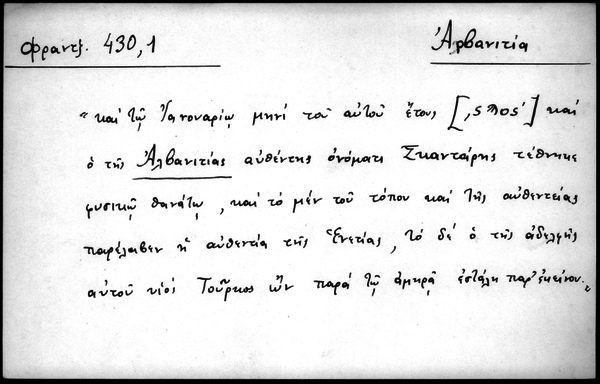 Φραντζ. 430,1
Ἀρβανιτία
"καί τῷ Ἰανουαρίῳ μηνί τοῦ αὐτοῦ ἔτους [,ςϠος'] καί
ὁ τῆς Ἀλβανιτίας αὐθέντης ὀνόματι Σκαντάρης τέθνηκε
φυσικῷ θανάτῳ, καί τό μέν τοῦ τόπου καί τῆς αὐθεντείας
παρέλαβεν ἡ αὐθεντία τῆς Ἑνετίας, τό δέ ὁ τῆς ἀδελφῆς
αὐτοῦ υἱός Τοῦρκος ὤν παρά τῷ ἀμηρᾷ ἐστάλη παρ' ἐκείνου."